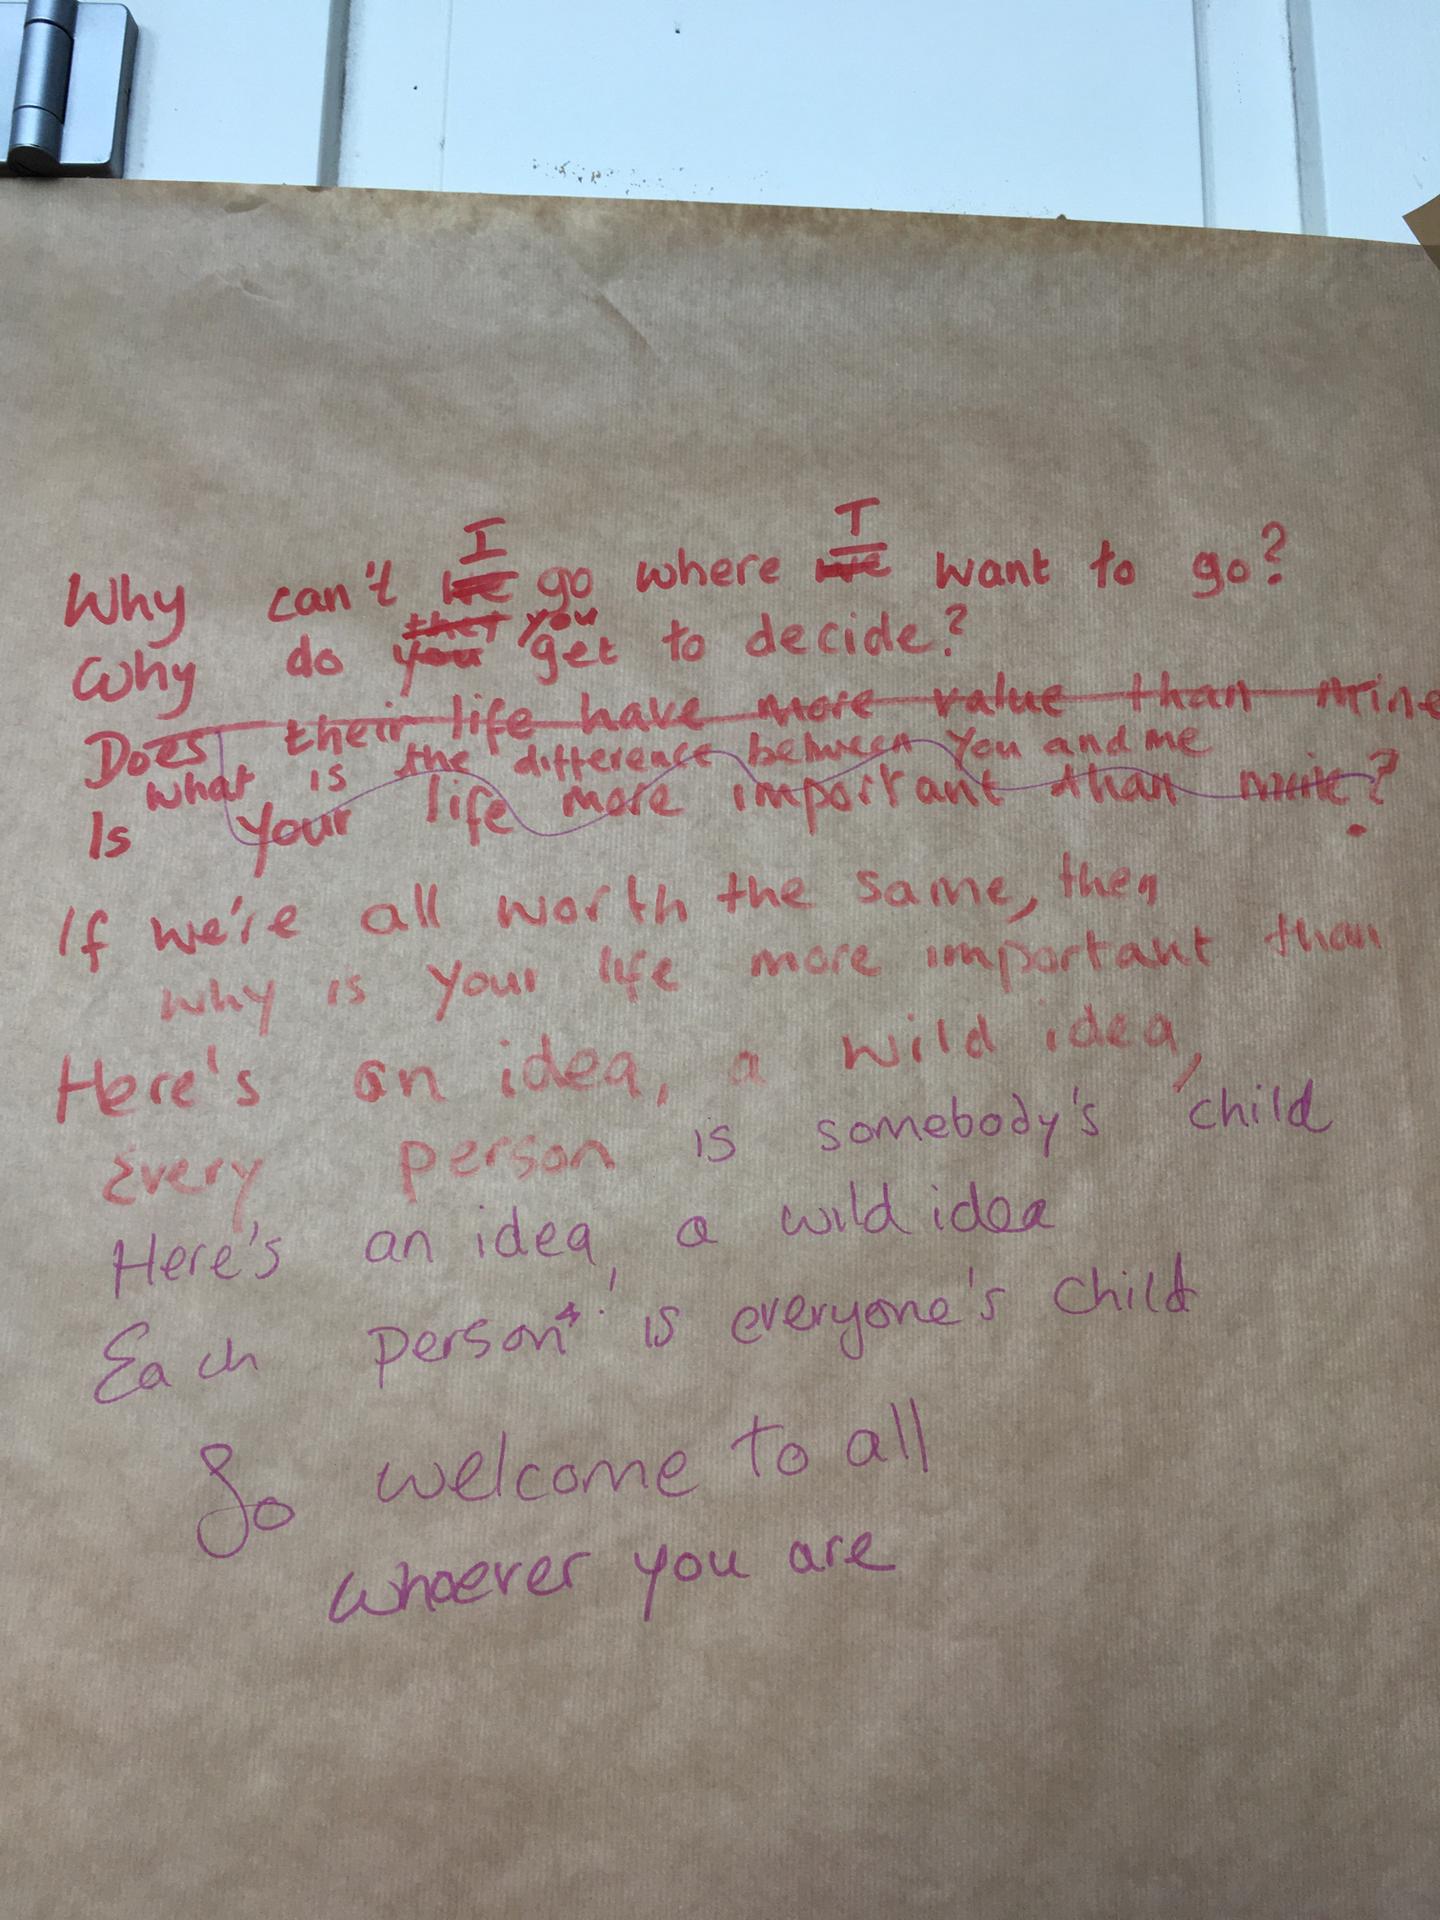 I I
Why can't we go where we want to go?
they you
Why do you get to decide?
Does their life have more value than mine
what is the difference between you and me
Is your life more important than mine?
If we're all worth the same, then
why is your life more important than
Here's an idea, a wild idea,
Every person is somebody's child
Here's an idea, a wild idea
Each person is everyone's child
So welcome to all
whoever you are